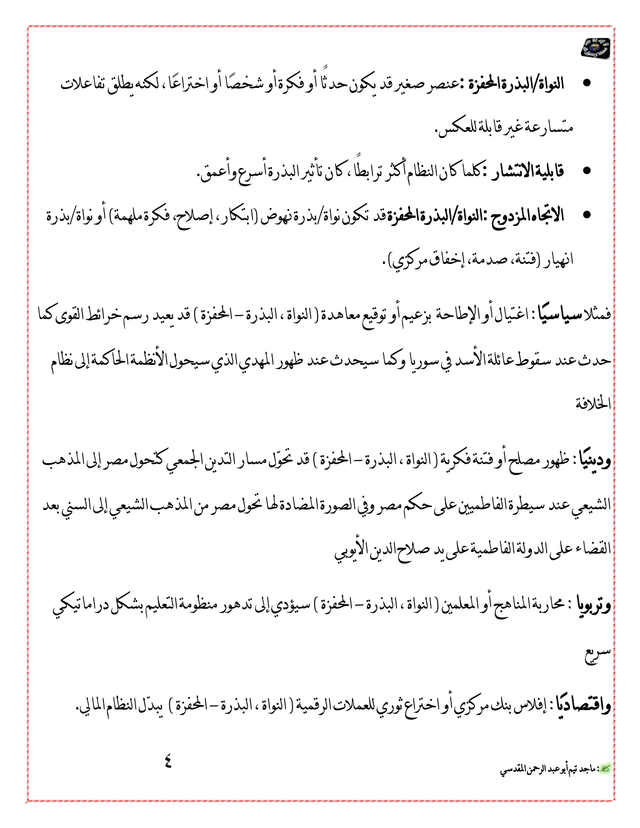 • النواة/البذرة المحفزة :عنصر صغير قد يكون حدثًا أو فكرة أو شخصًا أو اختراعًا ، لكنه يطلق تفاعلات
متسارعة غير قابلة للعكس.
• قابلية الانتشار :كلما كان النظام أكثر ترابطًا ، كان تأثير البذرة أسرع وأعمق.
• الاتجاه المزدوج :النواة/البذرة المحفزة قد تكون نواة/بذرة نهوض (ابتكار، إصلاح، فكرة ملهمة) أو نواة/بذرة
انهيار (فتنة، صدمة، إخفاق مركزي).
فمثلا سياسيًا : اغتيال أو الإطاحة بزعيم أو توقيع معاهدة ( النواة ، البذرة – المحفزة ) قد يعيد رسم خرائط القوى كما
حدث عند سقوط عائلة الأسد في سوريا وكما سيحدث عند ظهور المهدي الذي سيحول الأنظمة الحاكمة إلى نظام
الخلافة
ودينيًا : ظهور مصلح أو فتنة فكرية ( النواة ، البذرة – المحفزة ) قد تحوّل مسار التدين الجمعي كتحول مصر إلى المذهب
الشيعي عند سيطرة الفاطميين على حكم مصر وفي الصورة المضادة لها تحول مصر من المذهب الشيعي إلى السني بعد
القضاء على الدولة الفاطمية على يد صلاح الدين الأيوبي
وتربويا : محاربة المناهج أو المعلمين ( النواة ، البذرة – المحفزة ) سيؤدي إلى تدهور منظومة التعليم بشكل دراماتيكي
سريع
واقتصاديًا : إفلاس بنك مركزي أو اختراع ثوري للعملات الرقمية ( النواة ، البذرة – المحفزة ) يبدّل النظام المالي.
: ماجد تيم أبو عبد الرحمن المقدسي
٤